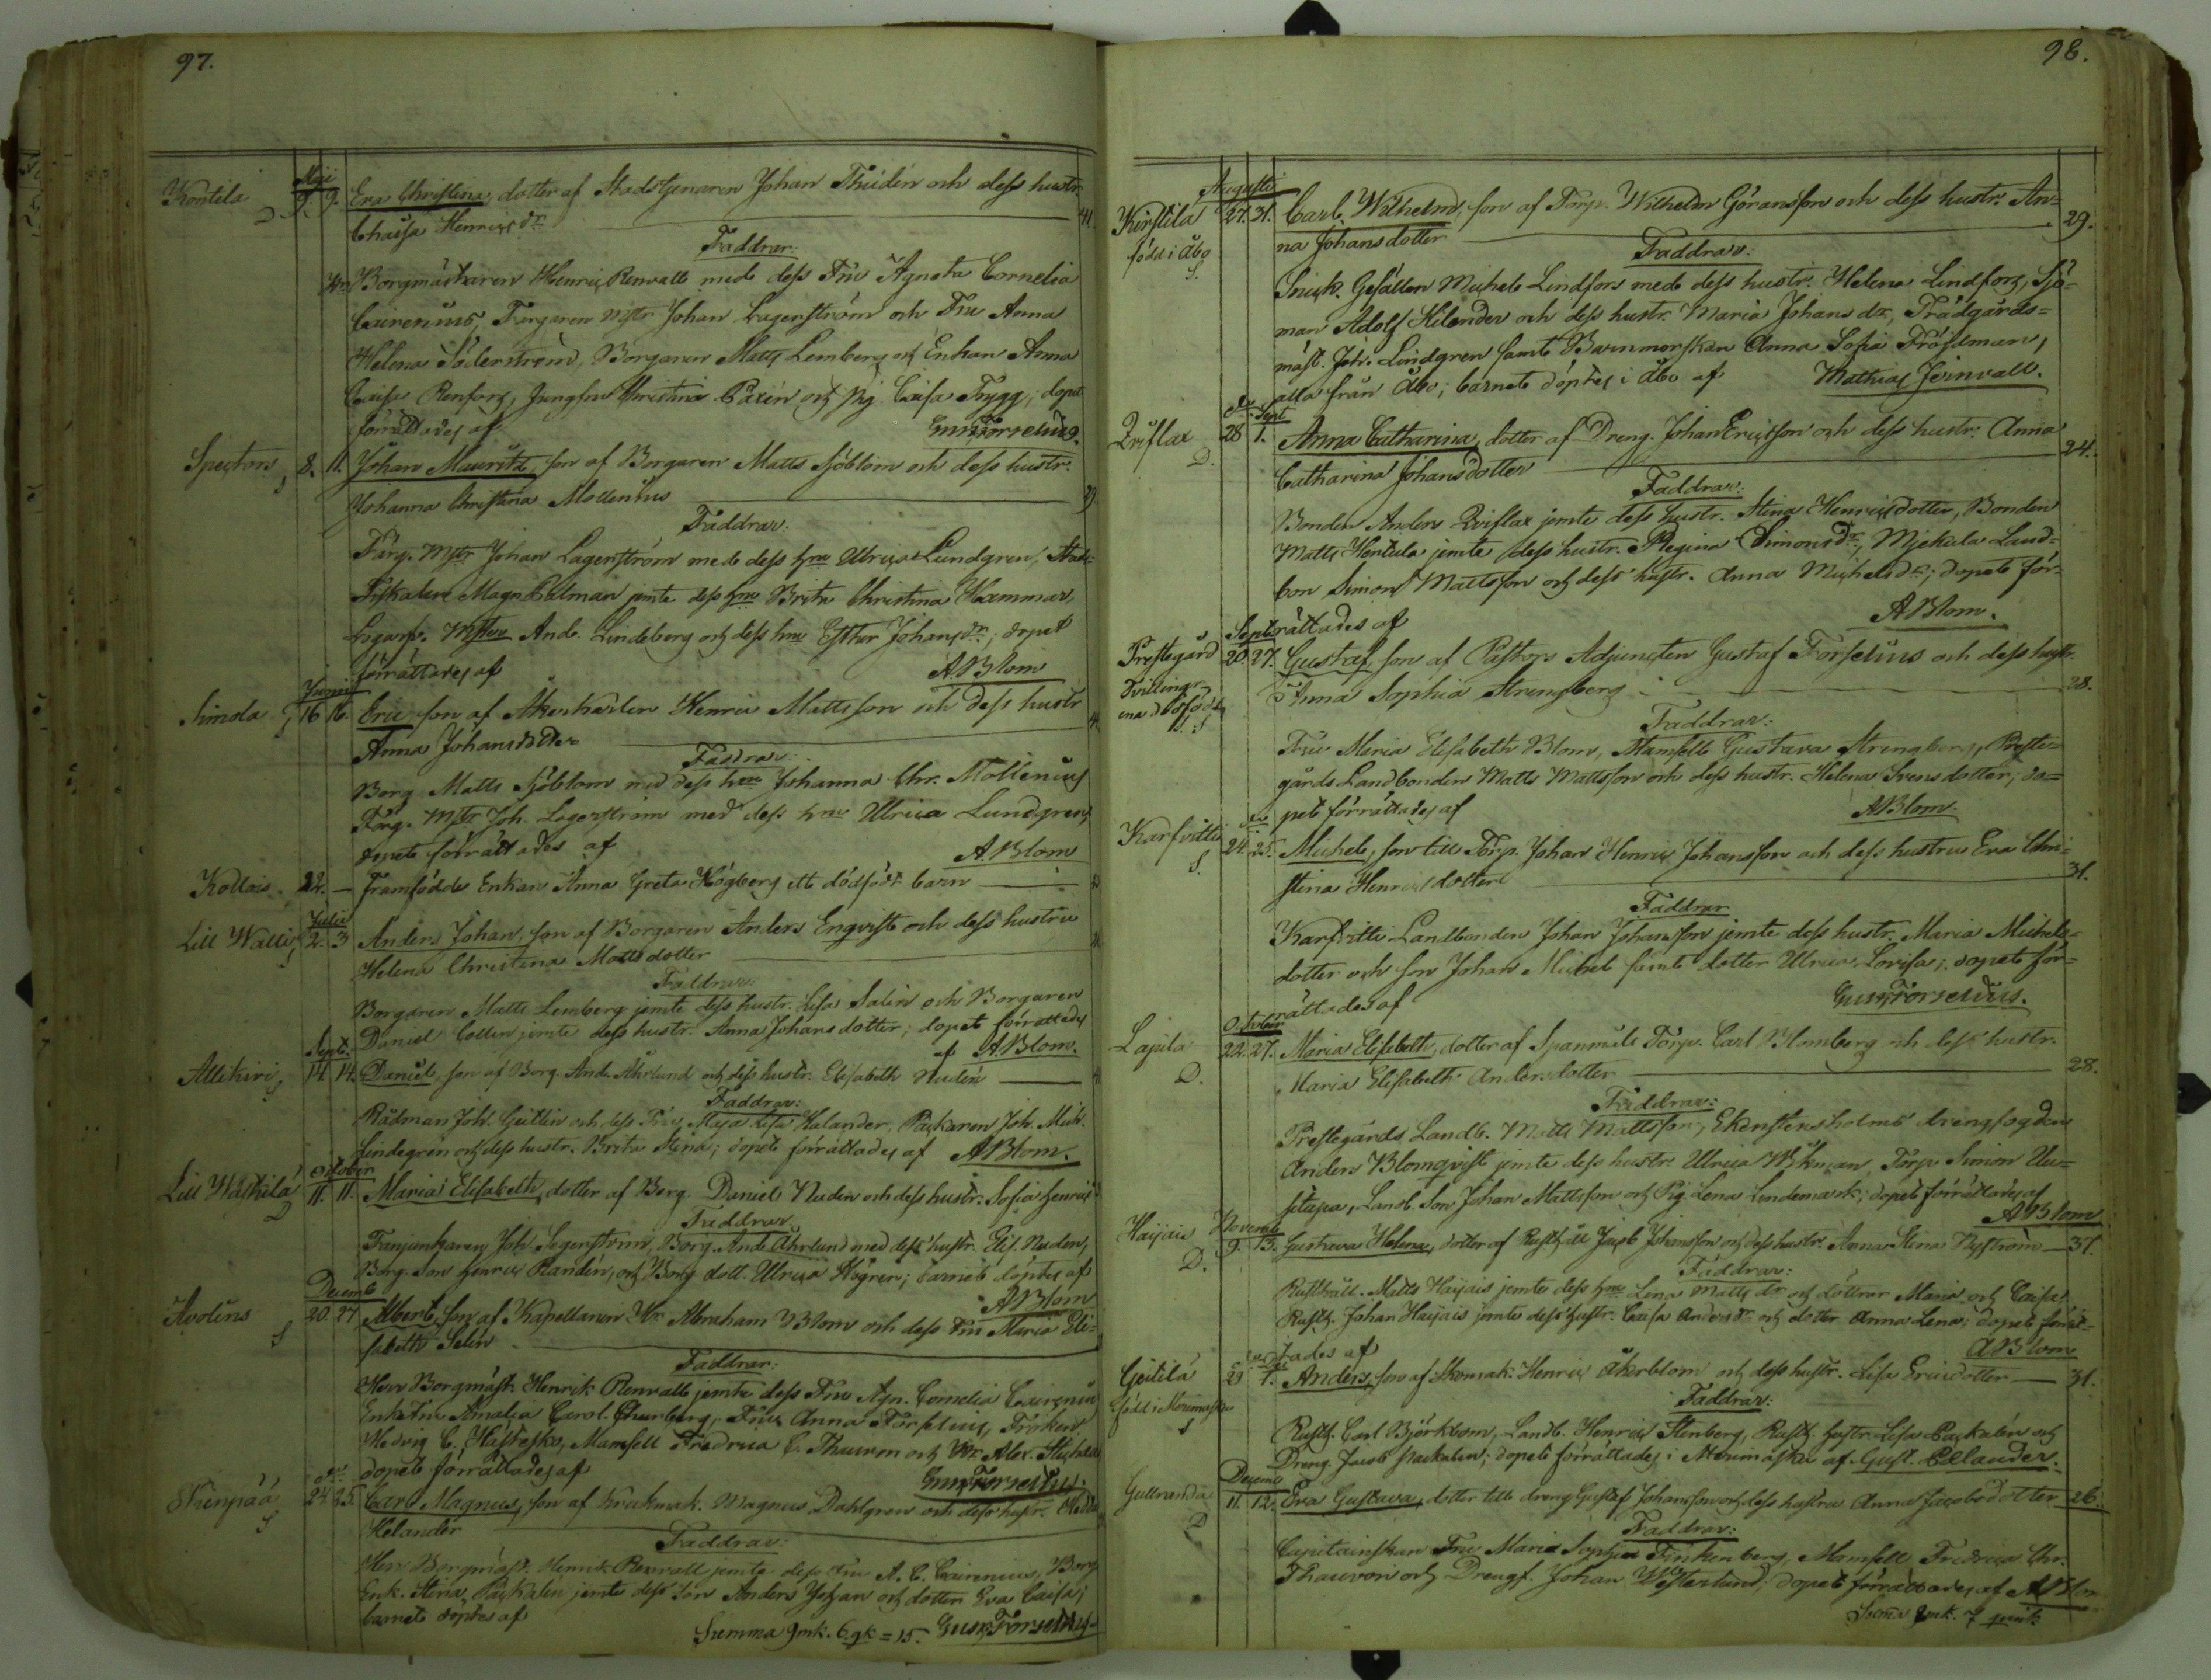 97.
Kontila D. Maji 9. 9. Eva Christina, dotter af Stadstjenaren Johan Thuidén och dess hustr.
Chaisa Henricsdr 41.
Faddrar:
Hr Borgmästaren Henric Renvall med dess Fru Agneta Cornelia
Cairenius, Färgaren Mstr Johan Lagerström och Fru Anna
Helena Söderström, Borgaren Matts Lemberg och Enkan Anna
Caisa Renfors, Jungfru Christina Paxén och Pig. Caisa Trygg; dopet
förrättades af Gust. Forselius.
Spectors S 8. 11. Johan Mauritz, son af Borgaren Matts Sjöblom och dess hustr.
Johanna Christina Mollenius
Faddrar:
Färg. Mstr Johan Lagerström med dess hru Ulrica Lundgren, Stads
Fiskalen Magn. Pelman jemte dess hru Brita Christina Hammar,
Mster And. Lindeberg och dess hru Esther Johansdr; dopet
förrättades af A Blom
Simola S Junii 16 16. Eric son af Åkerkarlen Henric Mattsson och dess hustr
Anna Johansdotter
Faddrar:
Borg. Matts Sjöblom med dess hru Johanna Chr. Mollenius
Färg. Mstr Joh. Lagerström med dess hru Ulrica Lundgren,
dopet förrättades af A. Blom
Kollais 22. — Framfödde Enkan Anna Greta Högberg ett dödfödt barn
Lill Walli S Julii 2. 3 Anders Johan, son af Borgaren Anders Engvist och dess hustru
Helena Christina Mattsdotter
Faddrar:
Borgaren Matts Lemberg jemte dess hustr. Lisa Salin och Borgaren
Daniel Collin jemte dess hustr. Anna Johansdotter; dopet förrättades
af A Blom.
Allikivi S Septr. 14. 14. Daniel, son af Borg. And. Åhrlund och dess hustr. Elisabeth Nudén
Faddrar:
Rådman Joh. Gullin och dess Fru Maja Lisa Helander, Packaren Joh. Mich.
Lindegren och dess hustr. Brita Stina; dopet förrättades af A Blom.
Lill Wäskilä D October 11. 11. Maria Elisabeth, dotter af Borg. Daniel Nudén och dess hustr. Sofia Henrics
Faddrar
Fanjunkaren Joh. Segerström, Borg. And. Åhrlund med dess hustr. Elis. Nuden,
Borg. son Henric Randén, och Borg. dott. Ulrica Högren; barnet döptes af
A Blom
Avolins S Decemb 20. 27 Albert, son af Kapellanen Hr. Abraham Blom och dess Fru Maria Eli-
sabeth Selin
Faddrar:
Herr Borgmäst. Henrik Renvall jemte dess Fru Agn. Cornelia Cairenius
Enkefru Amalia Carol. Thurberg, Fru Anna Forselius, Fröken
Hedvig C. Hästesko, Mamsell Fredrica C. Thauvon och Hr. Alex.
dopet förrättades af Gust. Forselius.
S 24. 25. Carl Magnus, son af Krukmak. Magnus Dahlgren och dess hustr.
Helander
Faddrar:
Herr Borgmäst. Henrik Renvall jemte dess Fru A. C. Cairenius, Borg
Enk. Stina Packalén jemte dess son Anders Johan och dotter Eva Caisa;
barnet döptes af Gust. Forselius
Summa 9 mk. 6 qk = 15.
98.
Kirstilä född i Åbo S. Augusti 27. 31. Carl Wilhelm, son af Torp. Wilhelm Göransson och dess hustr. An-
na Johansdotter 29.
Faddrar:
Snick. Gesällen Michel Lindfors med dess hustr. Helena Lindfors, Sjö-
man Adolf Kilander och dess hustr. Maria Johansdr, Trädgårds-
mäst. Joh. Lindgren samt Barnmorskan Anna Sofia Frösleman,
alla från Åbo; barnet döptes i Åbo af Mathias Jernvall.
Qviflax D. 28 Sept 1. Anna Catharina, dotter af Dreng. Johan Ericsson och dess hustr. Anna
Catharina Johansdotter 24.
Faddrar:
Bonden Anders Qviflax jemte dess hustr. Stina Henricsdotter, Bonden
Matts Hertula jemte dess hustr. Regina Simonsdr, Mjekula Land-
bon Simon Mattsson och dess hustr. Anna Michelsdr; dopet för-
rättades af A Blom.
Prestegård Tvillingar ena dödfödd S. S Septr 20. 27. Gustaf, son af Pastors Adjuncten Gustaf Forselius och dess hustr.
Anna Sophia Strengberg 28.
Faddrar:
Fru Maria Elisabeth Blom, Mamsell Gustava Strengberg, Preste-
gårds Landbonden Matts Mattsson och dess hustr. Helena Svensdotter; do-
pet förrättades af A Blom.
Karfvitti S. 24. 25. Michel, son till Torp. Johan Henric Johansson och dess hustru Eva Chri-
stina Henricsdotter 31.
Faddrar
Karfvitti Landbonden Johan Johansson jemte dess hustr. Maria Michels-
dotter och son Johan Michel samt dotter Ulrica Lovisa; dopet för-
rättades af Gust. Forselius.
Lapila D. October 22. 27. Maria Elisabeth, dotter af Spanmåls Torp. Carl Blomberg och dess hustr.
Maria Elisabeth Andersdotter 28.
Faddrar:
Prestegårds Landb. Matts Mattsson, Ekenstensholms drengfogden
Anders Blomqvist jemte dess hustr. Ulrica Wikman, Torp. Simon Uu-
situpa, Landb. Son Johan Mattsson och Pig. Lena Lindemark; dopet förrättades af
A Blom
Haijais D. Novemb 9. 13. Gustava Helena, dotter af Rusth:ll Jacob Johansson och dess hustr. Anna Stina Nyström — 37.
Faddrar:
Rusthåll. Matts Haijais jemte dess hru Lena Mattsdr och döttrar Maria och Caisa,
Rusth. Johan Haijais jemte dess hustr. Caisa Andersdr och dotter Anna Lena; dopet förrät-
tades af A Blom
Götilä född i Merimasku S 29 1. Anders, son af Skomak. Henric Åkerblom och dess hustr. Lisa Ericsdotter — 31.
Faddrar:
Rusth. Carl Björkbom, Landb. Henric Stenberg, Rusth. hustr. Lisa Packalén och
Dreng. Jacob Packalén; dopet förrättades i Merimasku af Gust. Pelander.
Gullranda D Decemb 11. 12. Eva Gustava, dotter till dreng Gustaf Johansson och dess hustru Anna Jacobsdotter 26.
Faddrar:
Capitainskan Fru Maria Sophia Finkenberg, Mamsell Fredrica Chr.
Thauvon och Drengf. Johan Westerlund; dopet förrättades af A Blom
Summa mk. 7